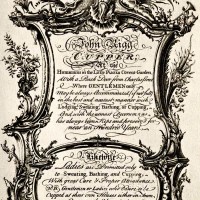 John Rigg
CUPPER,
At the
Hummums in the Little Piazza Covent Garden,
With a Back Door from Charles Street
Where GENTLEMEN only
May be always Accommodated (if not full)
in the best and neatest manner with
Lodging, Sweating, Bathing, or Cupping,
And with the utmost Decorum
has always been kept and preserv'd for
near an Hundred Years
Likewise
Ladies are Permitted only
to Sweating, Bathing, and Cupping,
With great Care & Proper Attendance,
NB. Gentlemen or Ladies who desire to be
Cupped at their own Houses